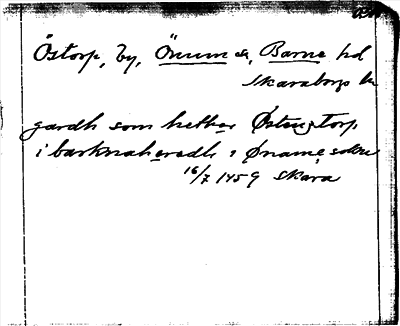 Östorp, by, Önum sn, Barne hd
Skaraborgs ln
gardh som hether Østenstorp
i barknahæredh i Øname sokn
16/7 1459 Skara